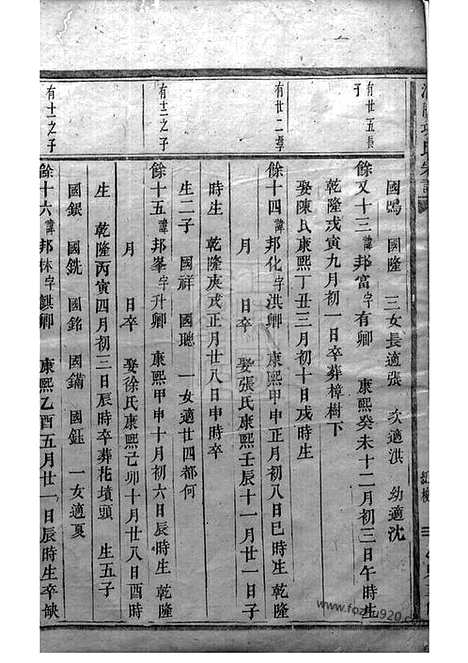 氏宗譜
國鳴 國隆 三女長適張 次適洪 幼適沈
有廿五長子
餘又十三諱邦富字有卿 康熙癸未十二月初三日午時生
乾隆戊寅九月初一日卒葬樟樹下
娶陳氏康熙丁丑三月初十日戌時生
有廿二子
餘十四諱邦化字洪卿 康熙甲申正月初八日巳時生 乾隆
月 日卒 娶張氏康熙壬辰十一月廿一日子
時生 乾隆庚戌正月廿八日申時卒
生二子 國祥 國聰 一女適廿四都何
有十二之子
餘十五諱邦峯字升卿 康熙甲申十月初六日辰時生 乾隆
月 日卒 娶徐氏康熙己卯十月廿八日酉時
生 乾隆丙寅四月初三日辰時卒葬花墳頭 生五子
國銀 國銑 國銘 國鏋 國鈺 一女適夏
有十一之子
餘十六諱邦林字麒卿 康熙乙酉五月廿一日辰時生卒缺
www.fozhu920.com